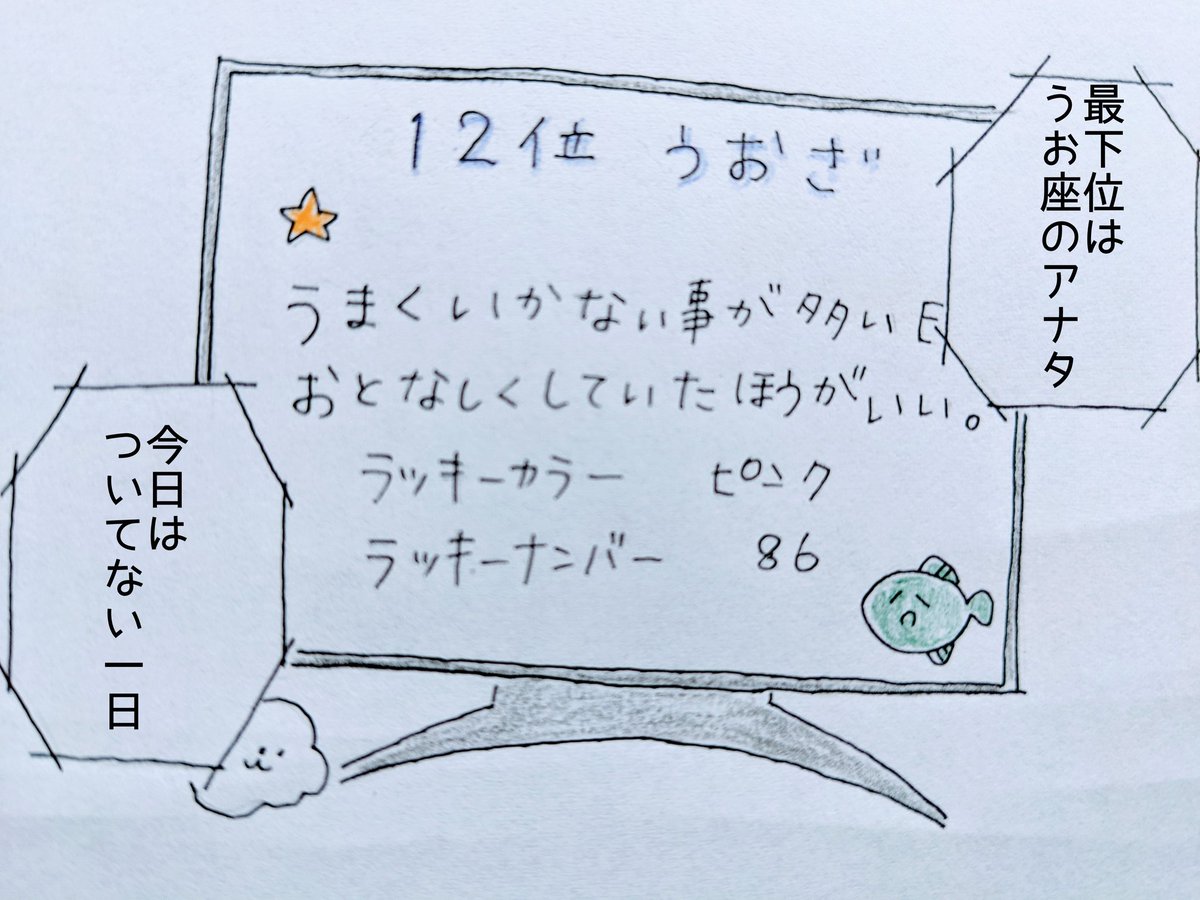 最下位は
うお座のアナタ
12位 うおざ
うまくいかない事が多い日
おとなしくしていたほうがいい。
ラッキーカラー ピンク
ラッキーナンバー 86
今日は
ついてない一日